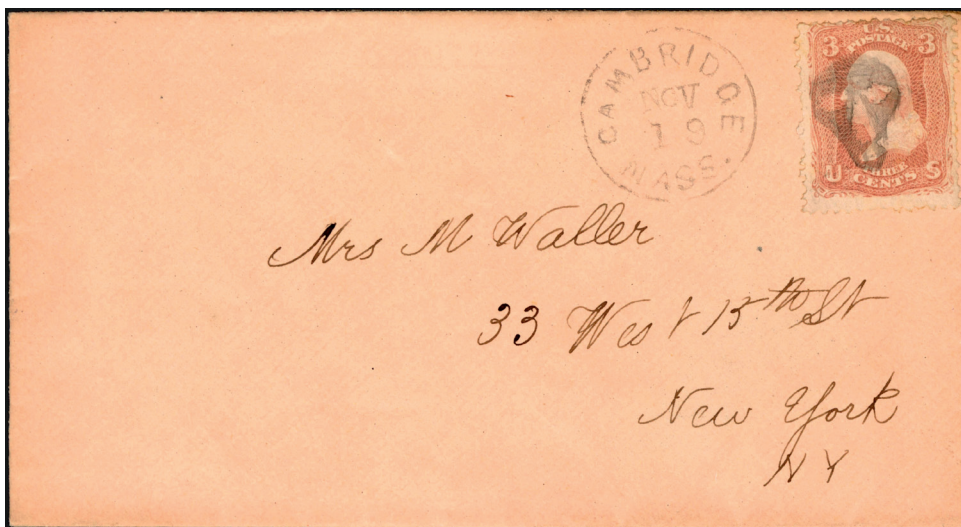 CAMBRIDGE
NOV
19
MASS.
U.S.
POSTAGE
3 3
U THREE S
CENTS
Mrs M Waller
33 West 15th St
New York
NY